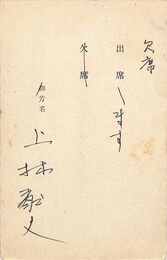 欠席
出席します
欠席
御芳名
上林